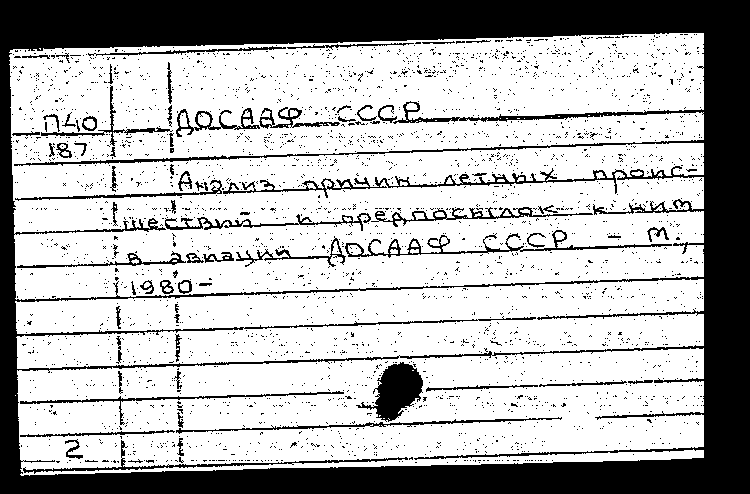 П40 ДОСААФ СССР
187
Анализ причин летных проис-
шествий и предпосылок к ним
в авиации ДОСААФ СССР - М.,
1980-
2